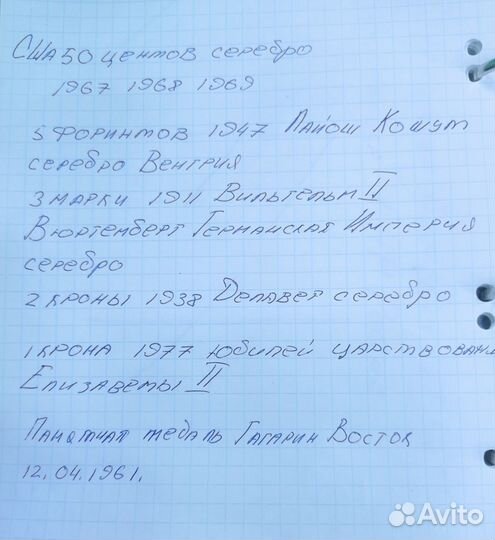 США 50 центов серебро
1967 1968 1969
5 форинтов 1947 Лайош Кошут
серебро Венгрия
3 марки 1911 Вильгельм II
Вюртемберг Германская Империя
серебро
2 кроны 1938 Делавер серебро
1 крона 1977 юбилей царствован
Елизаветы II
Памятная медаль Гагарин Восток
12.04.1961.
Avito